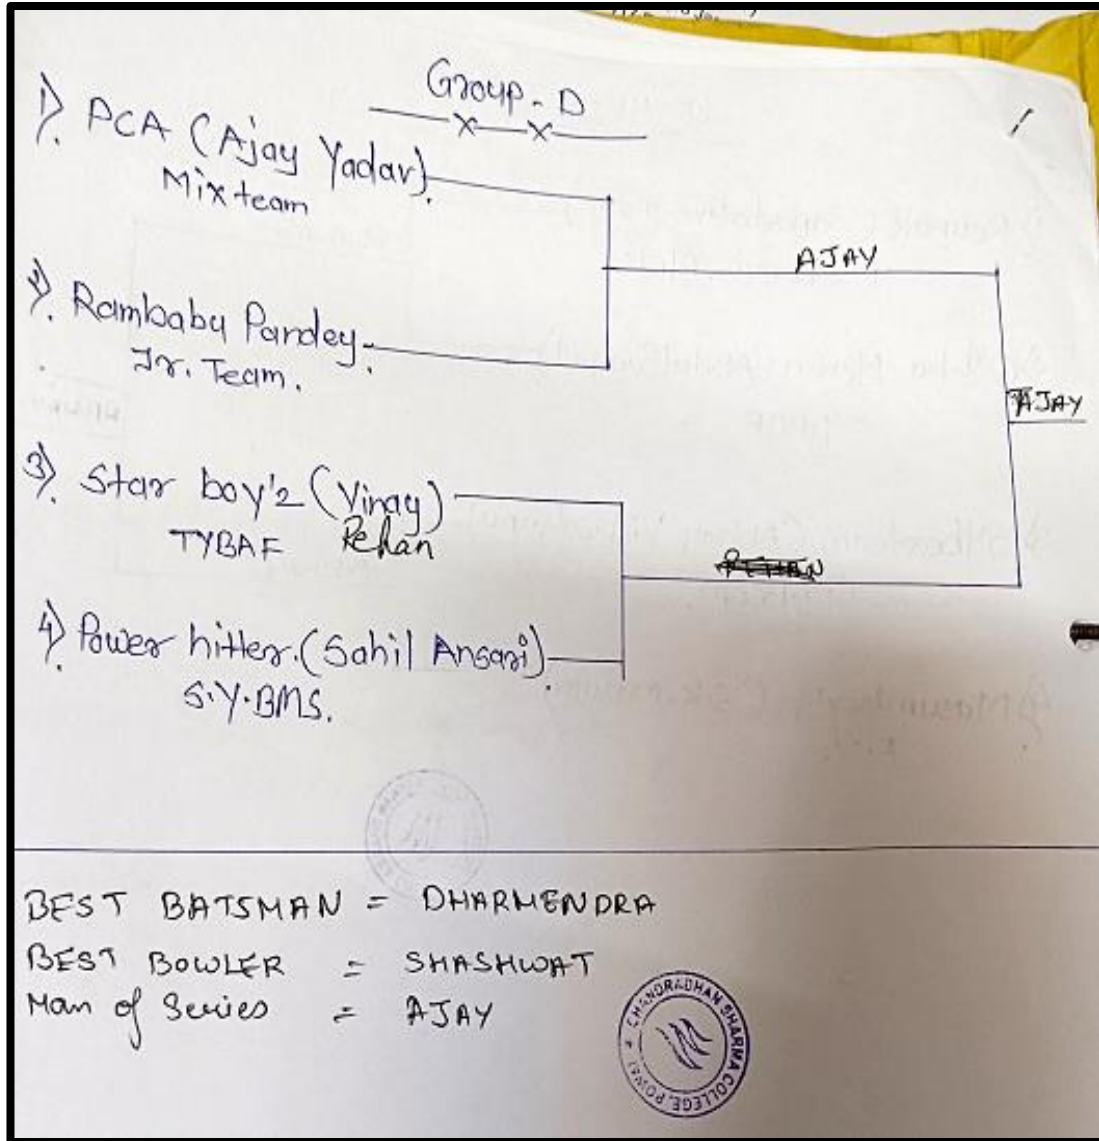 Group - D
1). PCA (Ajay Yadav).
Mix team
AJAY
2). Rambabu Pandey.
Jr. Team.
AJAY
3). Star boy'z (Vinay)
TYBAF Rehan
4). Power hitter. (Sahil Ansari).
S.Y.BMS.
BEST BATSMAN = DHARMENDRA
BEST BOWLER = SHASHWAT
Man of Series = AJAY
CHANDRABHAN SHARMA COLLEGE, POWAI